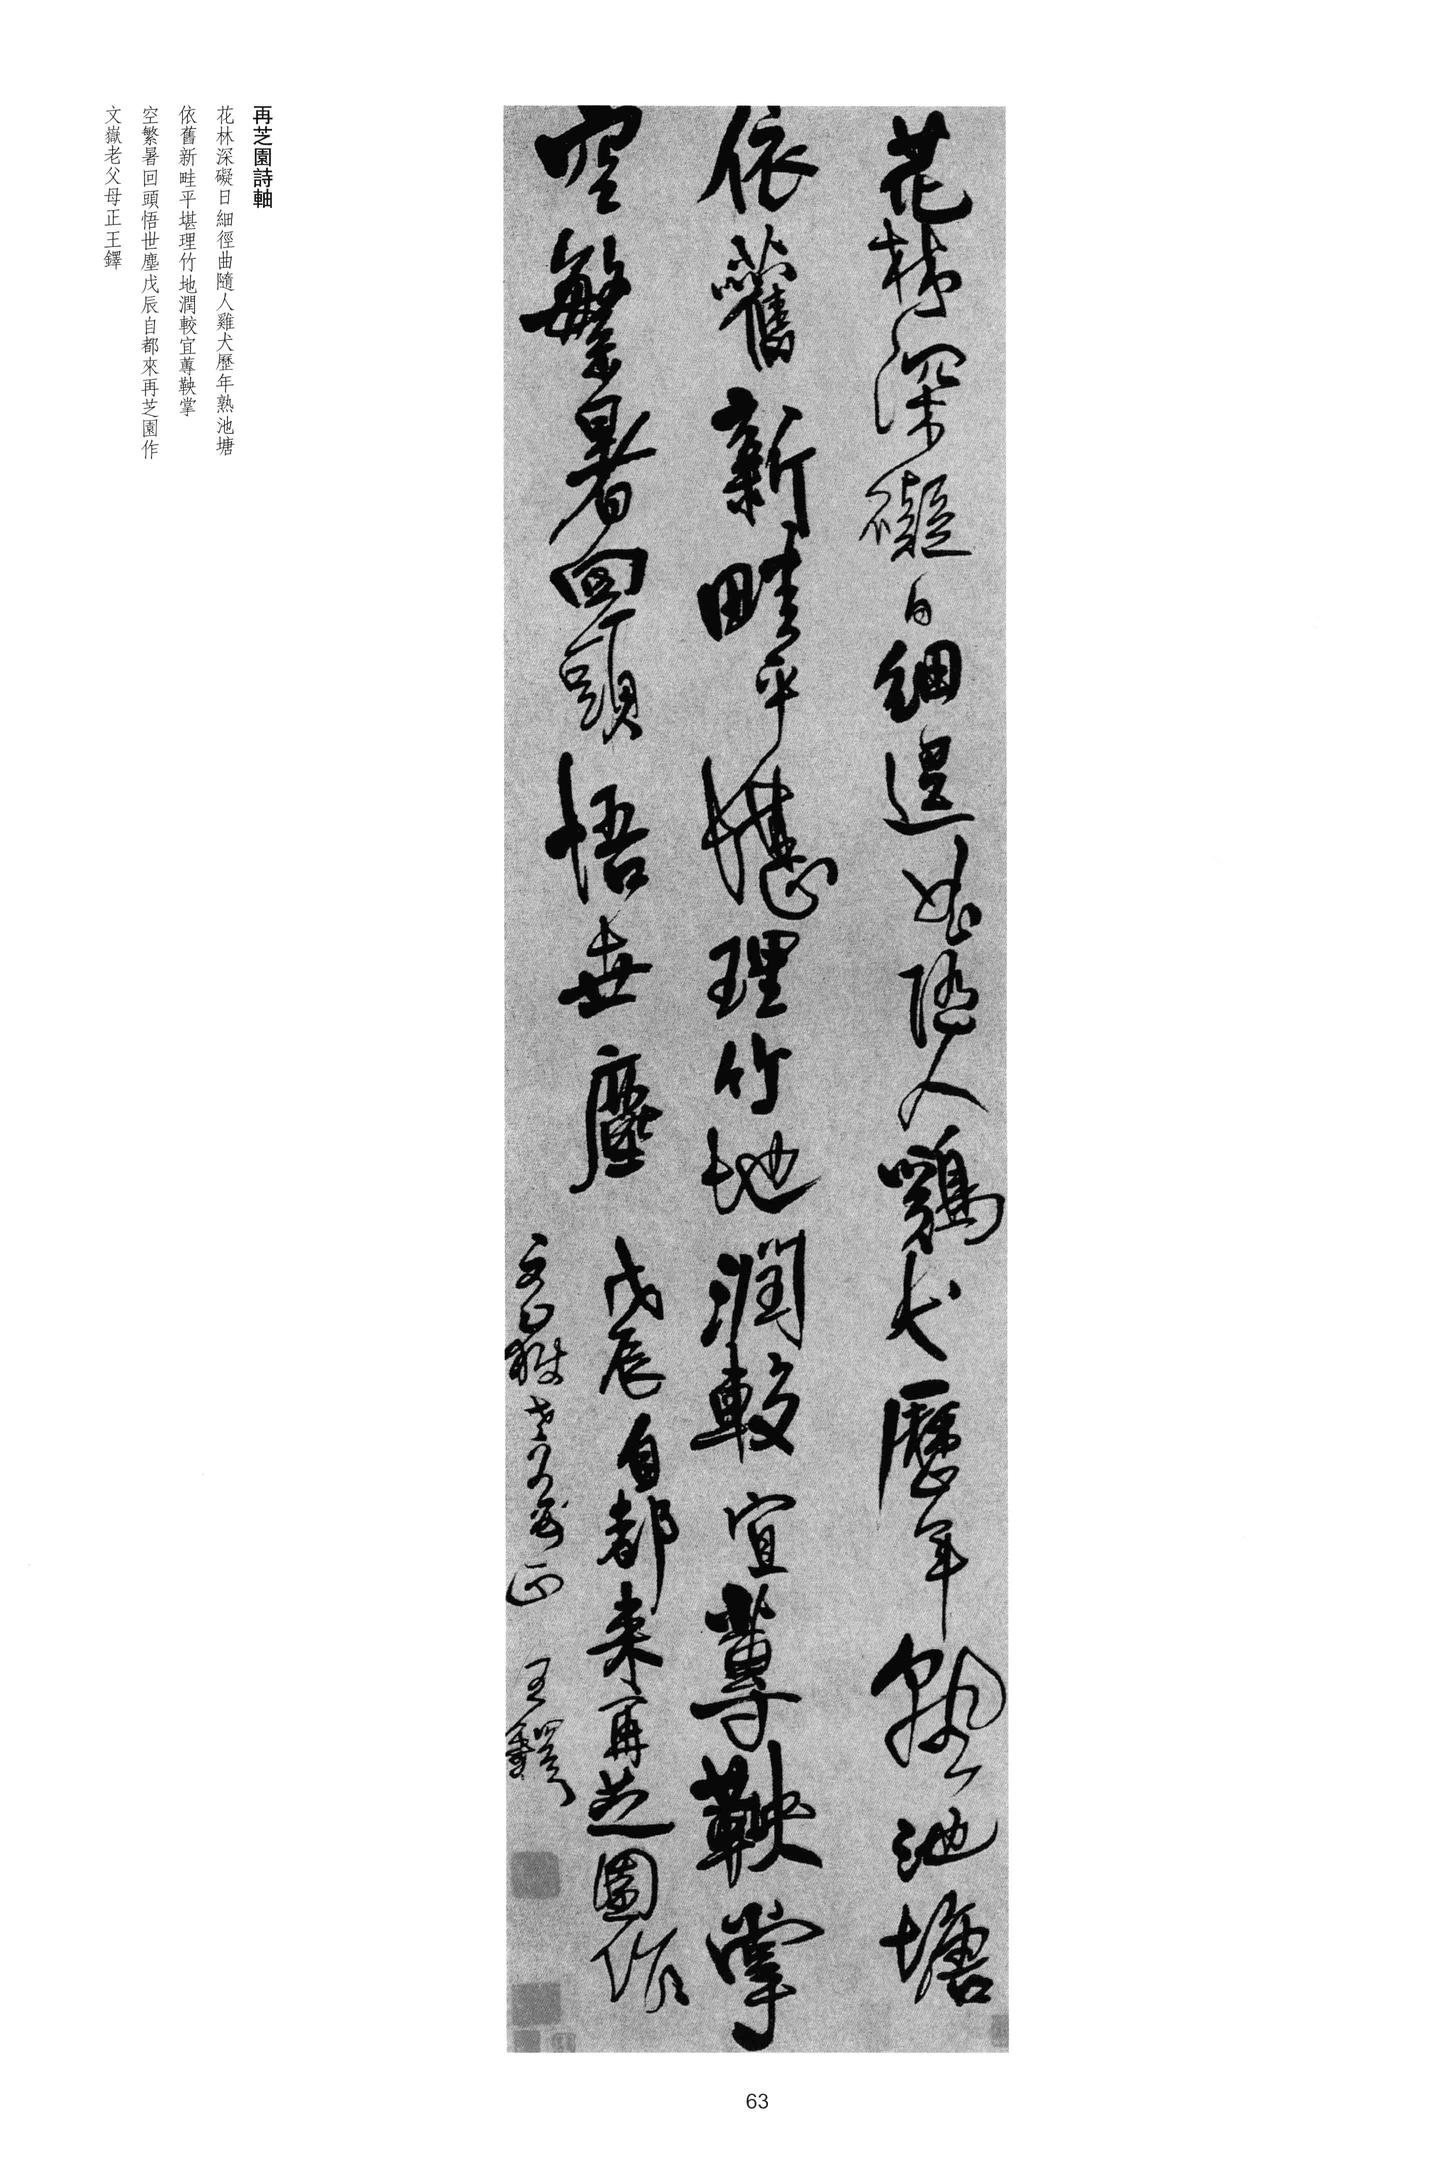 再芝園詩軸
花林深礙日細徑曲隨人雞犬歷年熟池塘
依舊新畦平堪理竹地潤較宜蓴鞅掌
空繁暑回頭悟世塵戊辰自都來再芝園作
文嶽老父母正王鐸
花林深礙日細徑曲隨人雞犬歷年熟池塘
依舊新畦平堪理竹地潤較宜蓴鞅掌
空繁暑回頭悟世塵戊辰自都來再芝園作
文嶽老父母正王鐸
63